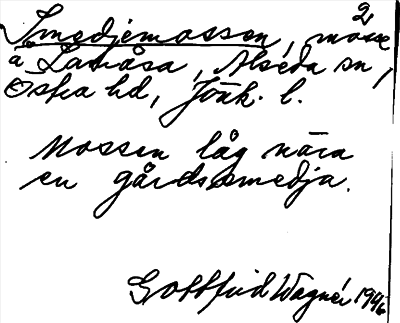 2
Smedjemossen, mosse
å Lanåsa, Alseda sn,
Östra hd, Jönk. l.
Mossen låg nära
en gårdssmedja.
Gottfrid Wagnér 1946